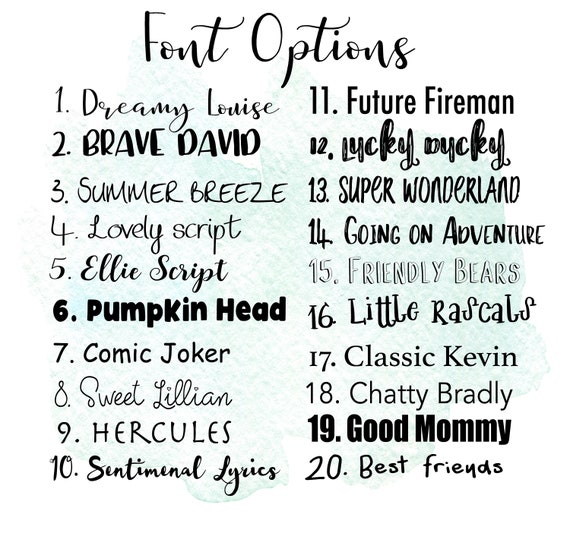 Font Options
1. Dreamy Louise
2. BRAVE DAVID
3. SUMMER BREEZE
4. Lovely script
5. Ellie Script
6. Pumpkin Head
7. Comic Joker
8. Sweet Lillian
9. HERCULES
10. Sentimenal Lyrics
11. Future Fireman
12. Lucky Ducky
13. SUPER WONDERLAND
14. GOING ON ADVENTURE
15. FRIENDLY BEARS
16. Little Rascals
17. Classic Kevin
18. Chatty Bradly
19. Good Mommy
20. Best friends